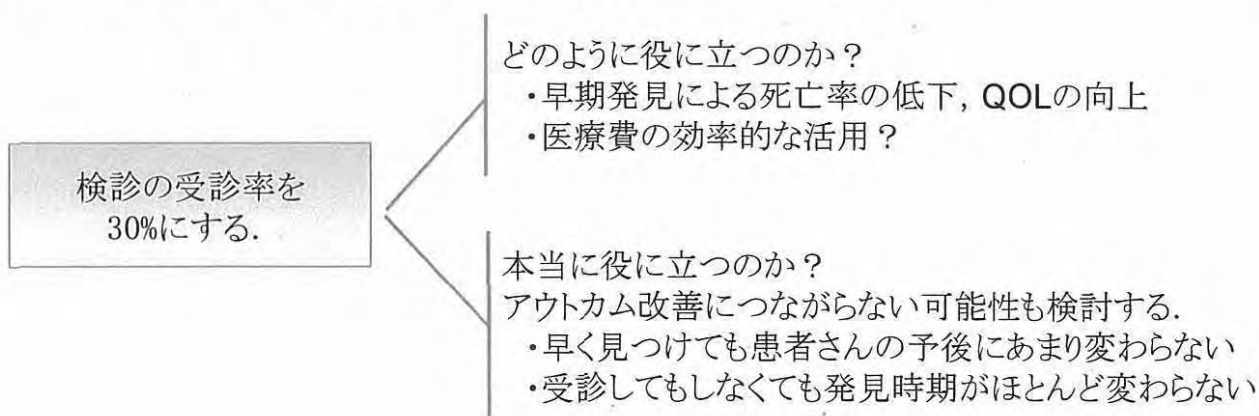 どのように役に立つのか？
・早期発見による死亡率の低下, QOLの向上
・医療費の効率的な活用？
検診の受診率を
30%にする.
本当に役に立つのか？
アウトカム改善につながらない可能性も検討する.
・早く見つけても患者さんの予後にあまり変わらない
・受診してもしなくても発見時期がほとんど変わらない